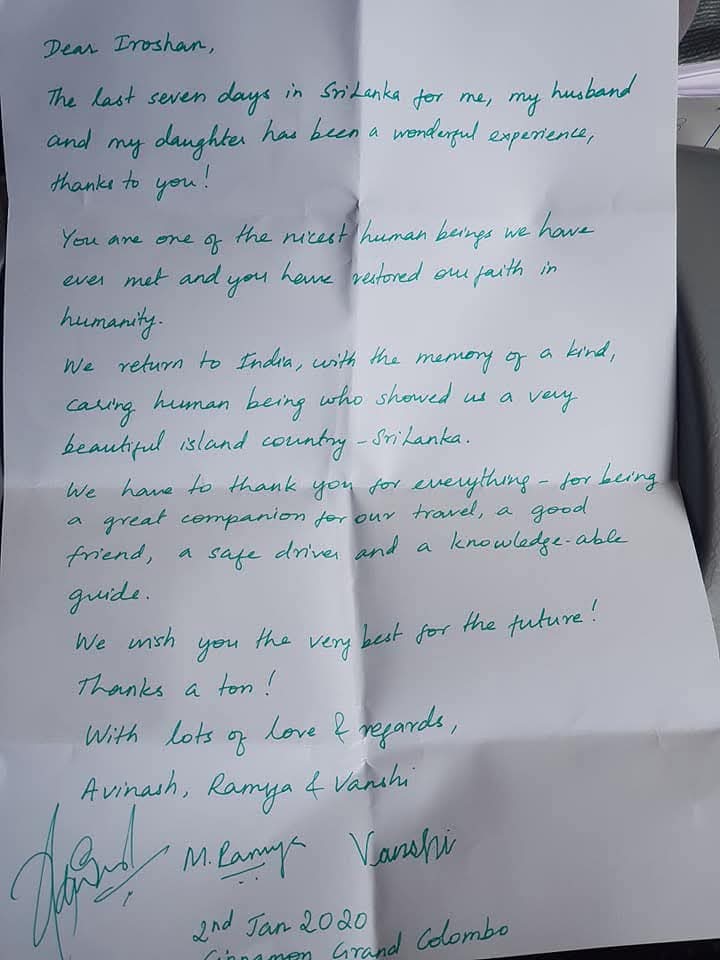 Dear Iroshan,
The last seven days in Sri Lanka for me, my husband
and my daughter has been a wonderful experience,
thanks to you!
You are one of the nicest human beings we have
ever met and you have restored our faith in
humanity.
We return to India, with the memory of a kind,
caring human being who showed us a very
beautiful island country - Sri Lanka.
We have to thank you for everything - for being
a great companion for our travel, a good
friend, a safe driver and a knowledge-able
guide.
We wish you the very best for the future!
Thanks a ton!
With lots of love & regards,
Avinash, Ramya & Vanshi
M. Ramya Vanshi
2nd Jan 2020
Cinnamon Grand Colombo